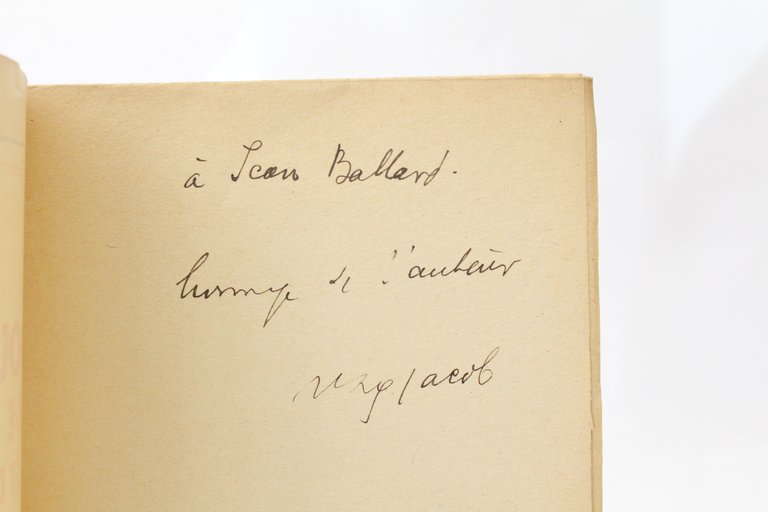 à Jean Ballard.
hommage de l'auteur
Max Jacob